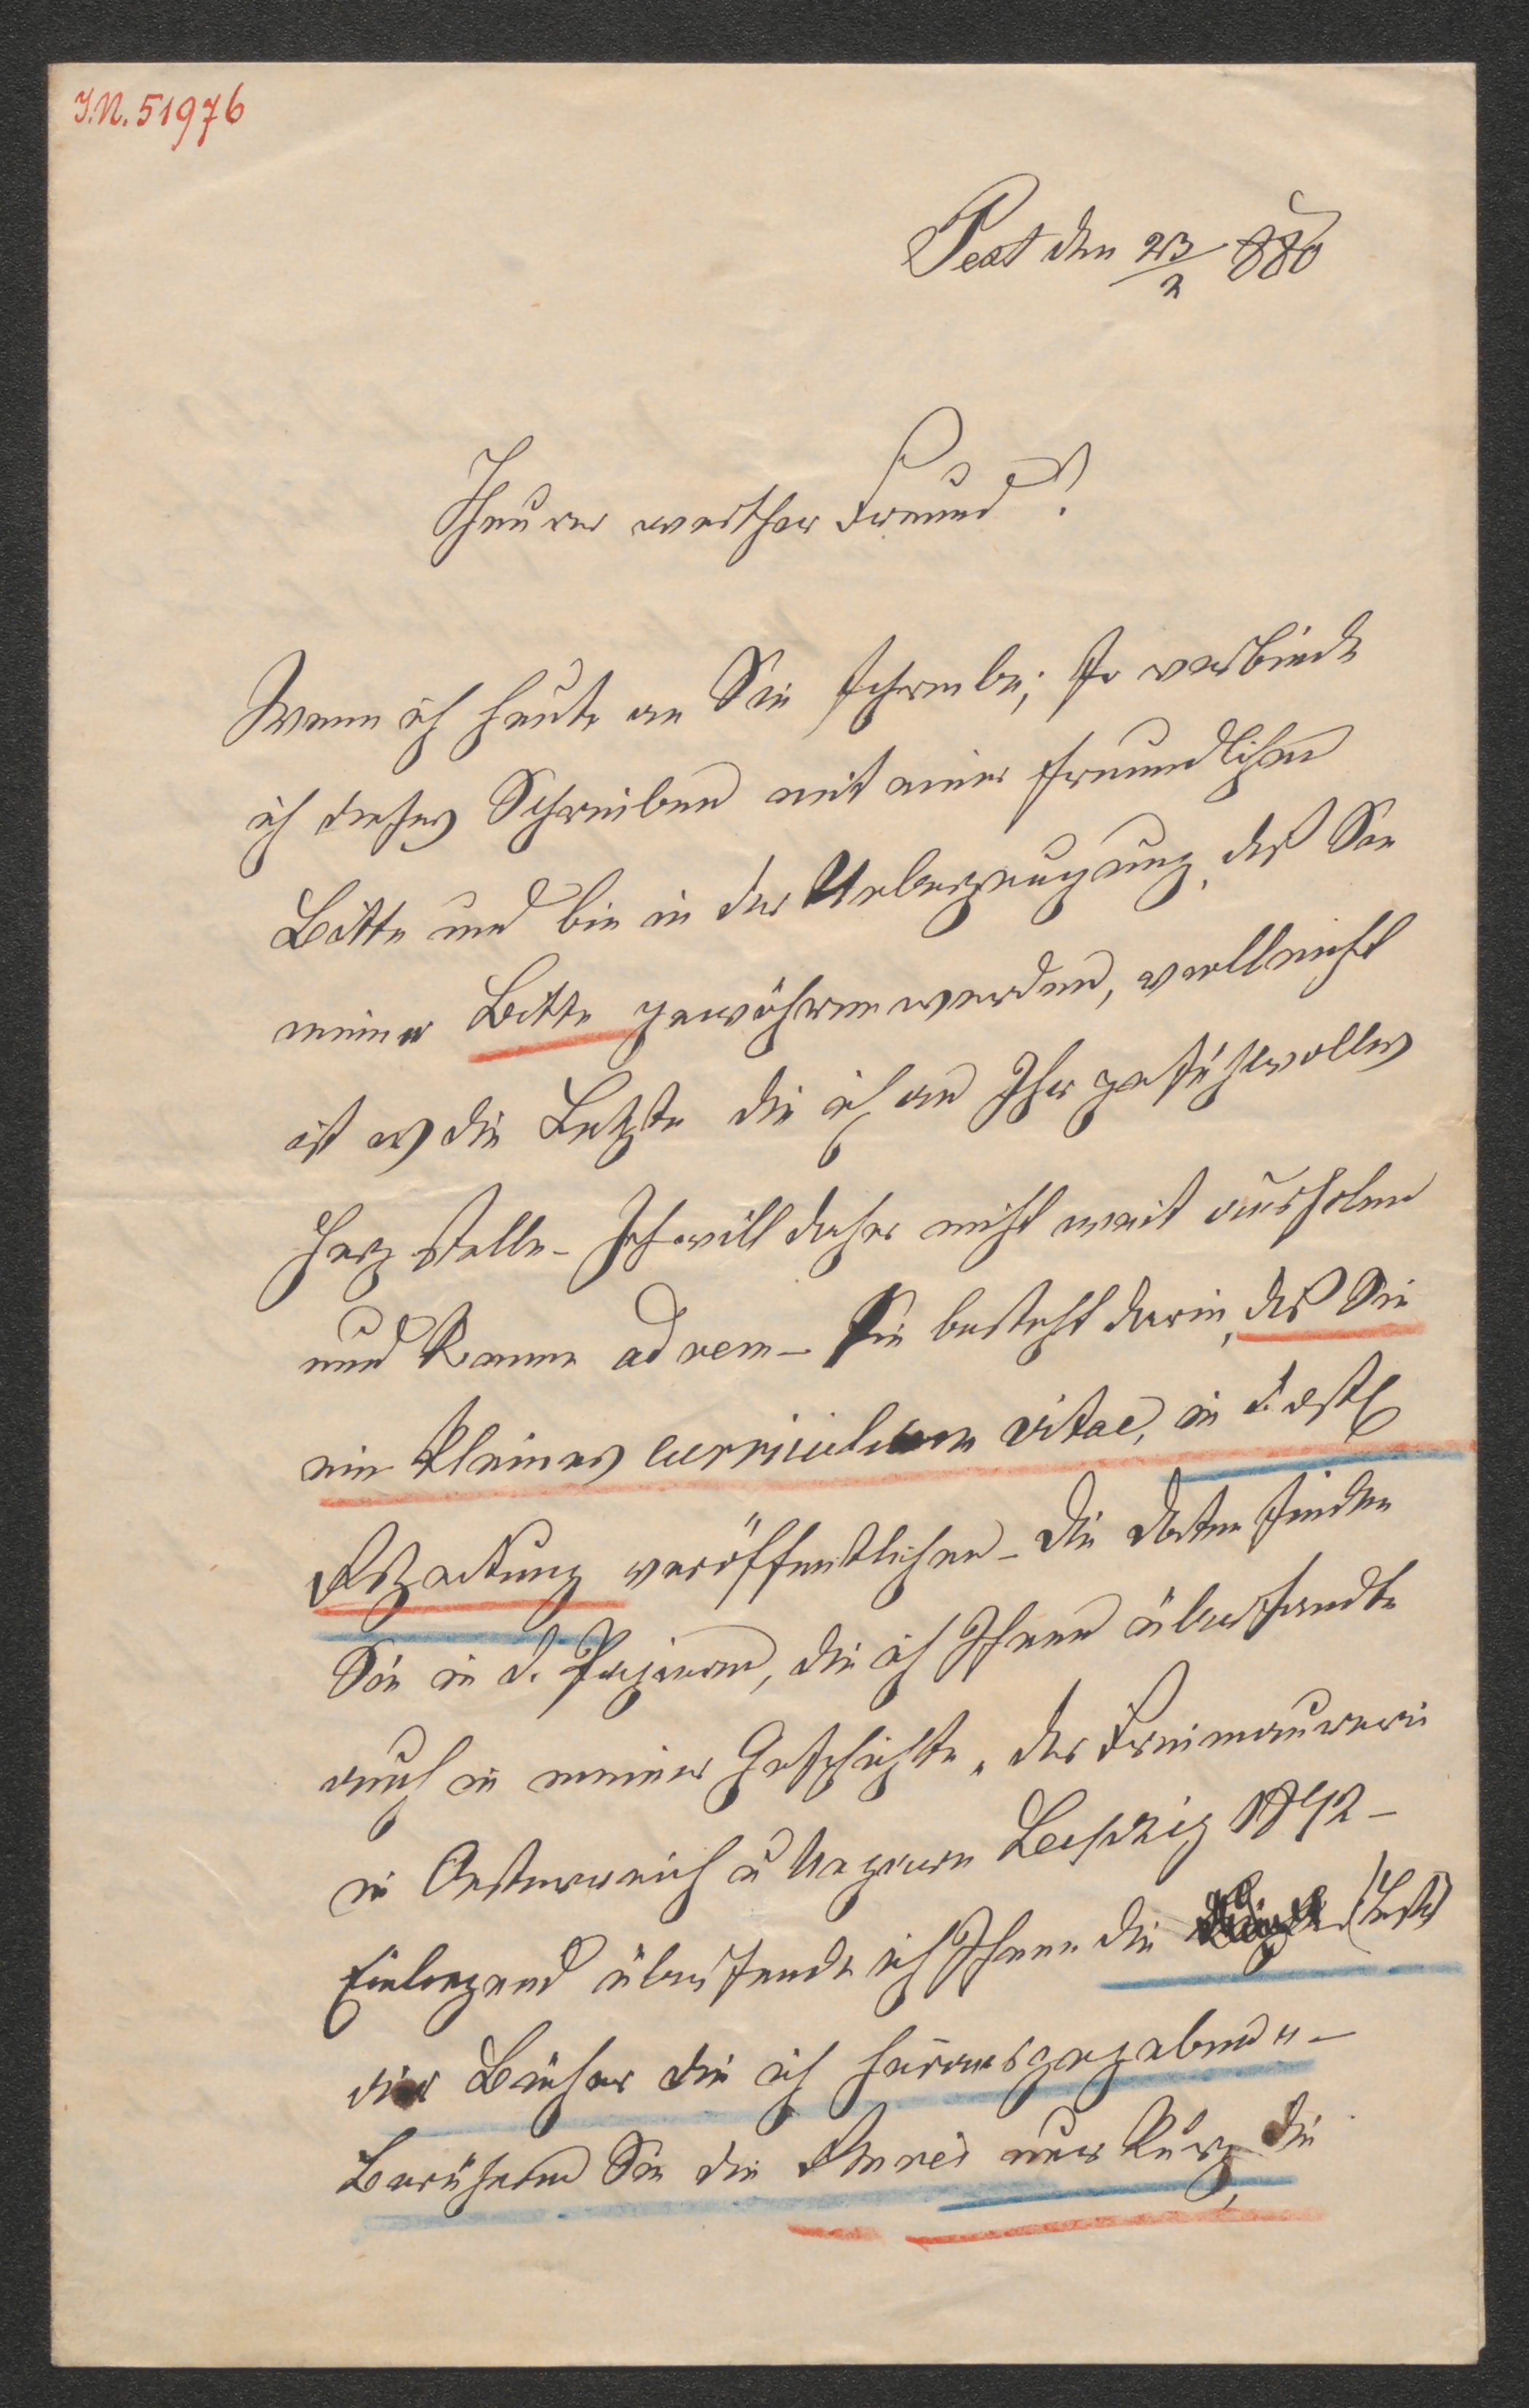 I.N. 51976
Pest den 23/2 880
Theurer werther Freund!
Wenn ich heute an Sie schreibe; so verbinde
ich dieses Schreiben mit einer freundlichen
Bitte und bin in der Ueberzeugung, daß Sie
meiner Bitte gewähren werden, vielleicht
ist es die Letzte die ich an Ihr gefühlvolles
Herz stelle - Ich will daher nicht weit ausholen
und komme ad rem - Sie besteht darin, daß Sie
ein kleines curriculum vitae, in d.
veröffentlichen - Die Daten finden
Sie in d. die ich Ihnen übersandte
auch in meiner Geschichte „der Freimaurerei
in Oesterreich u Ungarn Leipzig 1872 -
Einliegend übersende ich Ihnen die
der Bücher die ich herausgegeben -
Berühren Sie die nur kurz, die